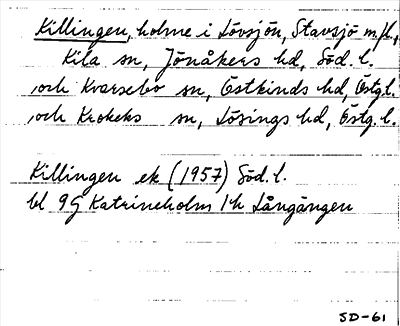 Killingen, holme i Lövsjön, Stavsjö m.fl.,
Kila sn, Jönåkers hd, Söd. l.
och Kvarsebo sn, Östkinds hd, Östg.l.
och Krokeks sn, Lösings hd, Östg. l.
Killingen ek (1957) Söd. l.
bl 9G Katrineholm 1h Långången
SD-61